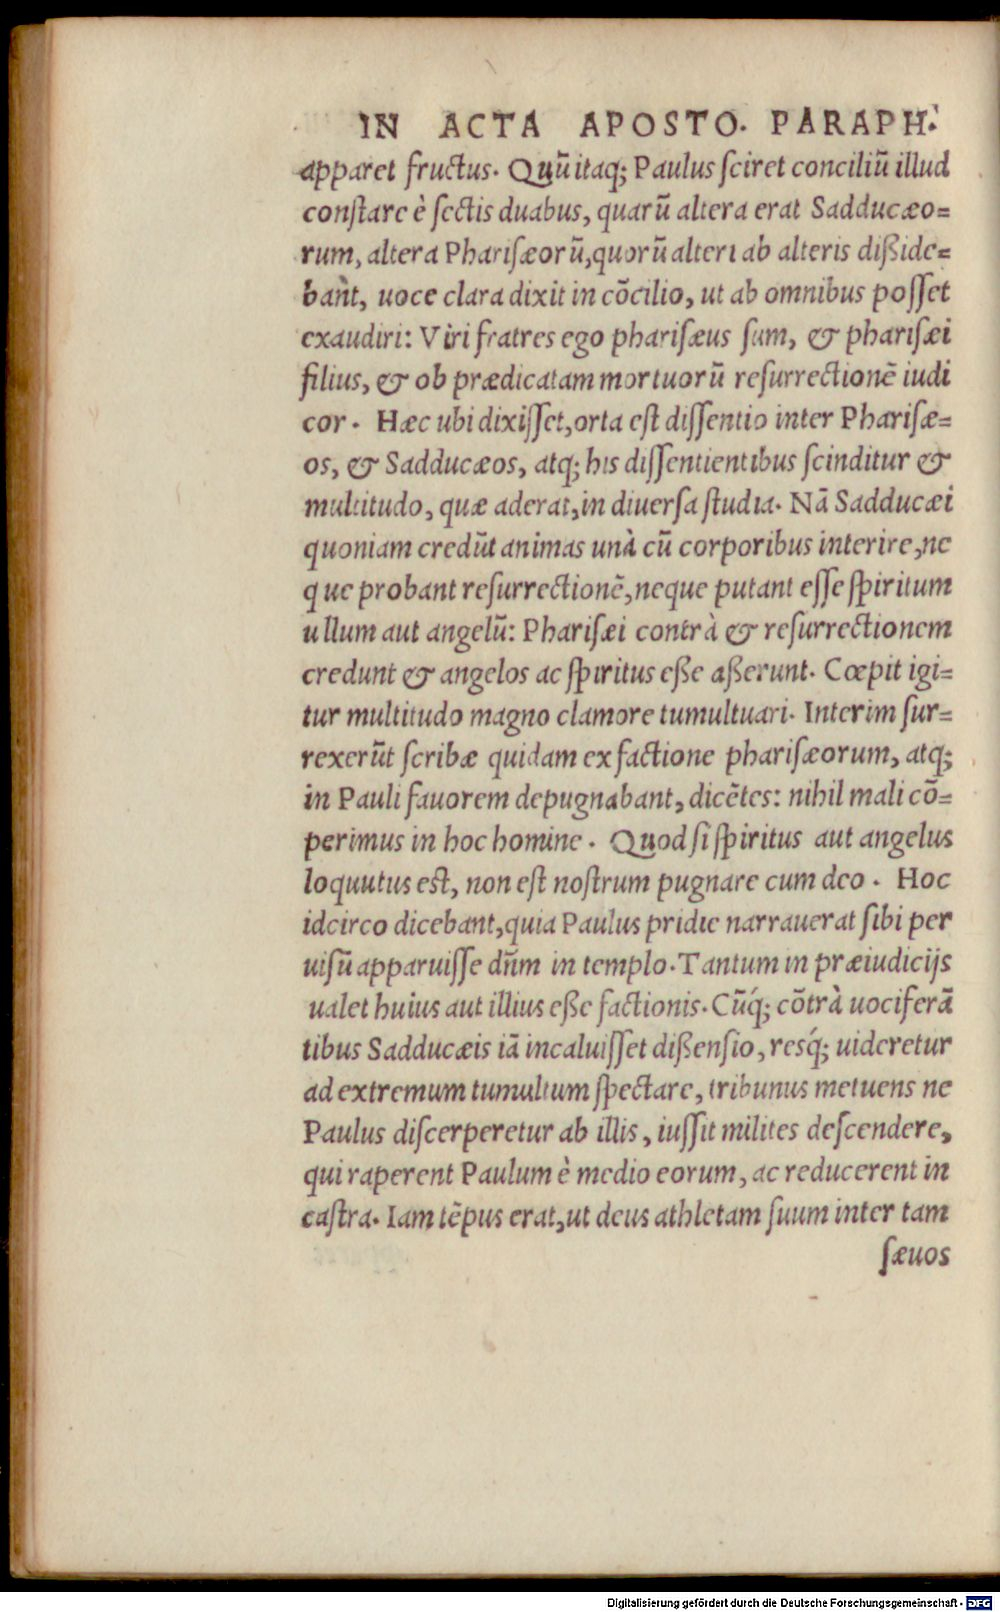 IN ACTA APOSTO. PARAPH.
apparet fructus. Quũ itaq; Paulus ſciret conciliũ illud
conſtare è ſectis duabus, quarũ altera erat Sadducæo=
rum, altera Phariſæorũ, quorũ alteri ab alteris dißide=
bant, uoce clara dixit in cõcilio, ut ab omnibus poſſet
exaudiri: Viri fratres ego phariſæus ſum, & phariſæi
filius, & ob prædicatam mortuorũ reſurrectionẽ iudi
cor. Hæc ubi dixiſſet, orta eſt diſſentio inter Phariſæ=
os, & Sadducæos, atq; his diſſentientibus ſcinditur &
multitudo, quæ aderat, in diuerſa ſtudia. Nã Sadducæi
quoniam credũt animas unà cũ corporibus interire, ne
que probant reſurrectionẽ, neque putant eſſe ſpiritum
ullum aut angelũ: Phariſæi contrà & reſurrectionem
credunt & angelos ac ſpiritus eße aßerunt. Cœpit igi=
tur multitudo magno clamore tumultuari. Interim ſur=
rexerũt ſcribæ quidam ex factione phariſæorum, atq;
in Pauli fauorem depugnabant, dicẽtes: nihil mali cõ=
perimus in hoc homine. Quod ſi ſpiritus aut angelus
loquutus est, non eſt noſtrum pugnare cum deo. Hoc
idcirco dicebant, quia Paulus pridie narrauerat ſibi per
uiſũ apparuiſſe dñm in templo. Tantum in præiudicijs
ualet huius aut illius eße factionis. Cũq́; cõtrà uociferã
tibus Sadducæis iã incaluiſſet dißenſio, resq́; uideretur
ad extremum tumultum ſpectare, tribunus metuens ne
Paulus diſcerperetur ab illis, iuſſit milites deſcendere,
qui raperent Paulum è medio eorum, ac reducerent in
caſtra. Iam tẽpus erat, ut deus athletam ſuum inter tam
ſæuos
Digitalisierung gefördert durch die Deutsche Forschungsgemeinschaft - DFG